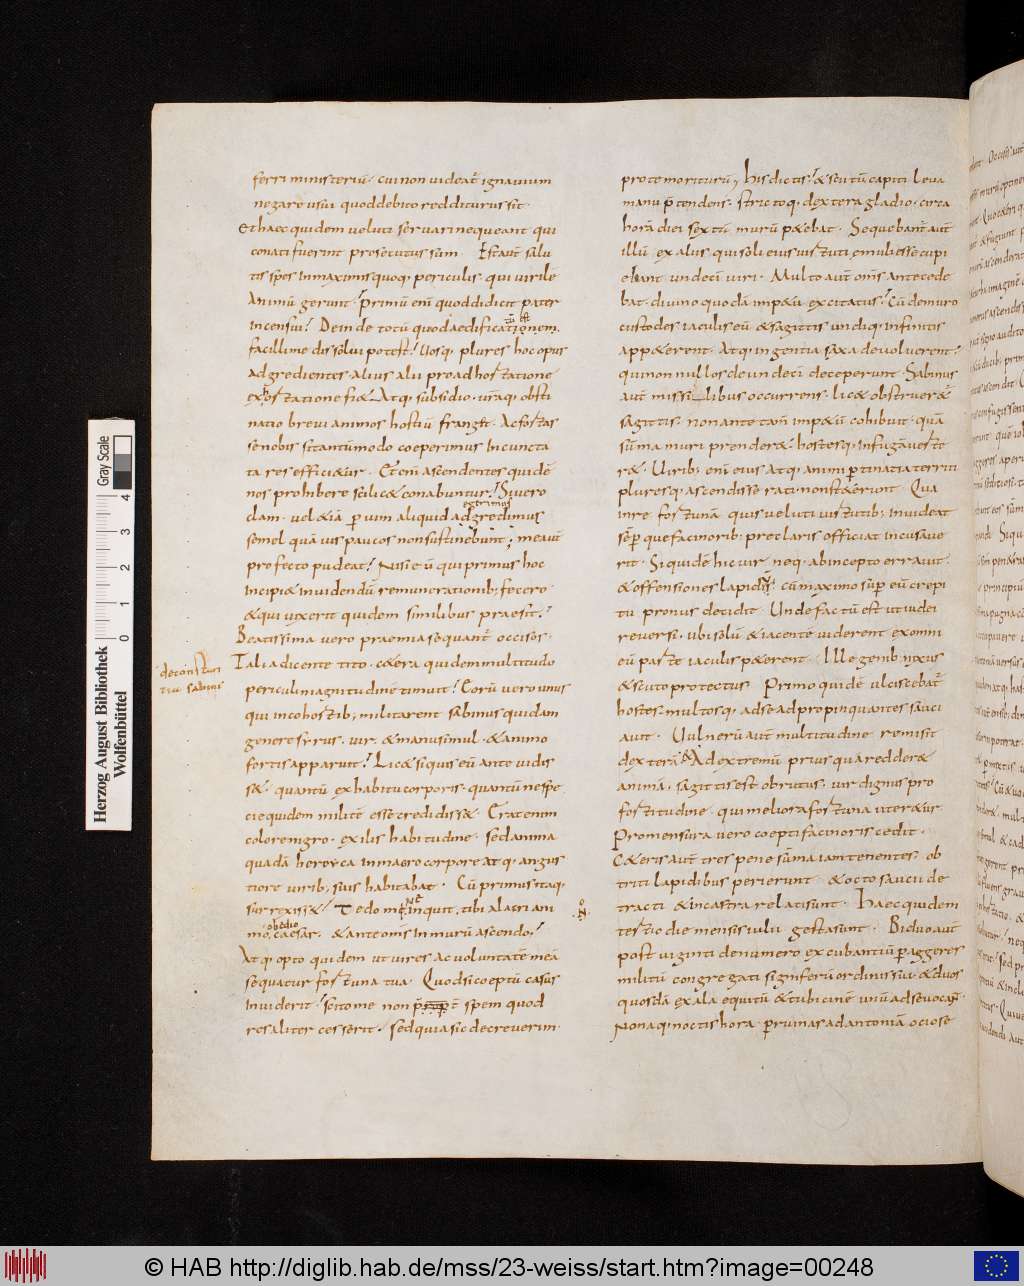 ferri ministeriū · cui non uideat̄ ignauium
negare usui quod debito redditurus sit ·
Et haec quidem ueluti seruari nequeant qui
conati fuerint prosecutus sum · Est aut̄ salu
tis spes in maximis quoq; periculis qui uirile
animū gerunt · Primū eni quod didicit pater
incensui · Dein de totū quod aedificationem
facillime dissolui potest · Uosq; plures hoc opus
adgredientes alius alii pro adhortatione
exortatione fiet · Atq; subsidio · uraq; obsti
natio breui animos hostiū franget · Ac fortas
se nobis sit antū modo coeperimus bi cuncta
ta res efficietur · Etenī ascendentes quidē
nos prohibere scilicet conabuntur · Si uero
clam · uel etiā p uim aliquid adgredimus
extrimos
semel quā uis paucos non sustinebunt ; me aut̄
profecto pudeat · Nisi eū qui primus hoc
incipiet inuidendū remunerationib; fecero
& qui uixerit quidem similibus praesit ·
Beatissima uero praemia sequant̄ occisos ·
Talia dicente tito · caetera quidem multitudo
de constan
tia sabini
periculi magnitudine timuit · Eorū uero unus
qui in cohortib; militarent sabinus quidam
genere syrus · uir · & manu simul · & animo
fortis apparuit · Licet si quis eū ante uidis
set · quantū ex habitu corporis · quantū nespe
cie quidem militē esse credidisset · Erat enim
colore nigro · exilis habitudine · sed anima
quadā heroyca in macro corpore atq; angus
tiore uirib; suis habitabat · Cū primus itaq;
surrexisset · Tedo me inquit · tibi alacri ani
obedio
mo caesar · & ante omīs in murū ascendo ·
Atq; opto quidem ut uires ac uoluntatē meā
sequatur fortuna tua · Quod si coeptū casus
inuiderit · scito me non spem quod
res aliter cesserit · sed quia sic decreuerim ·
pro te moriturū · His dictis · & scutū capiti leua
manu p̄tendens · strictoq; dextera gladio · circa
horā diei sextū murū petebat · Sequebant̄ aut̄
illū ex alus qui soli eius uirtuti emuli esse cupi
ebant undeci uiri · Multo aut̄ omīs antecede
bat · diuino quodā impetu excitatus · Cū de muro
custodes iaculis eū & sagittis undiq; infinitis
appeterent · Atq; ingentia saxa deuoluerent ·
qui nonnullos de undeci deceperunt · Sabinus
aut̄ missilibus occurrens · licet obstrueret̄
sagittis · non ante tam impetū cohibuit · quā
sūma muri prenderet · hostesq; in fugā uerte
ret · Uirib; enī eius atq; animi ptinatia territi
pluresq; ascendisse rati · non steterunt · Qua
in re fortunā quis ueluti uirtutib; inuideat
sēp que facinorib; preclaris officiat incusaue
rit · Si quidē hic uir neq; ab incepto errauit
& offensione lapidis · cū maximo sup eū crepi
tu pronus decidit · Unde factū est ut iudei
reuersi · ubi solū & iacente uiderent ex omni
eū parte iaculis peterent · Ille genib; nixus
& scuto protectus · Primo quidē ulciscebat̄
hostes · multosq; ad se adpropinquantes sauci
auit · Uulnerū aut̄ multitudine remisit
dexterā & Ad extremū priusqua redderet
animā · sagittis est obrutus · uir dignus pro
fortitudine · qui meliora fortuna uteretur ·
Pro mensura uero coepti facinoris cedit ·
Ceteris aut̄ tres pene sūma iam tenentes · ob
triti lapidibus perierunt · & octo saucii de
tracti & in castra relati sunt · Haec quidem
tertio die mensis iulii gesta sunt · Biduo aut̄
post uiginti de numero excubantiū p aggeres
militū congregati signiferū ordinis sui · & duos
quosdā ex ala equitū & tubicinē unū ad se uocaȓ ·
Nonaq; noctis hora p ruinas ad antoniā ociose
Herzog August Bibliothek
Wolfenbüttel
Gray Scale
0 1 2 3 4
© HAB http://diglib.hab.de/mss/23-weiss/start.htm?image=00248